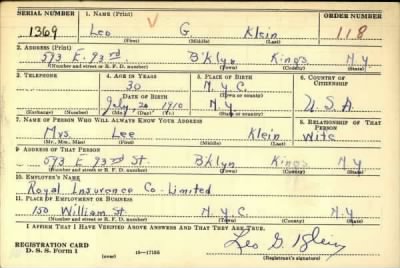 SERIAL NUMBER 1. NAME (Print) ORDER NUMBER
1369 Leo G. Klein 118
(First) (Middle) (Last)
2. ADDRESS (Print)
593 E. 93rd B'klyn Kings N.Y
(Number and street or R. F. D. number) (Town) (County) (State)
3. TELEPHONE 4. AGE IN YEARS 5. PLACE OF BIRTH 6. COUNTRY OF CITIZENSHIP
30 N.Y.C.
DATE OF BIRTH (Town or county)
July 20 1910 N.Y U.S.A
(Exchange) (Number) (Mo.) (Day) (Yr.) (State or country)
7. NAME OF PERSON WHO WILL ALWAYS KNOW YOUR ADDRESS 8. RELATIONSHIP OF THAT PERSON
Mrs. Lee Klein Wife
(Mr., Mrs., Miss) (First) (Middle) (Last)
9. ADDRESS OF THAT PERSON
593 E 93rd St B'klyn Kings N.Y
(Number and street or R. F. D. number) (Town) (County) (State)
10. EMPLOYER'S NAME
Royal Insurence Co-Limited
11. PLACE OF EMPLOYMENT OR BUSINESS
150 William St. N.Y.C. N.Y
(Number and street or R. F. D. number) (Town) (County) (State)
I AFFIRM THAT I HAVE VERIFIED ABOVE ANSWERS AND THAT THEY ARE TRUE.
REGISTRATION CARD Leo G. Klein
D. S. S. Form 1 (over) 16-17105 (Registrant's signature)